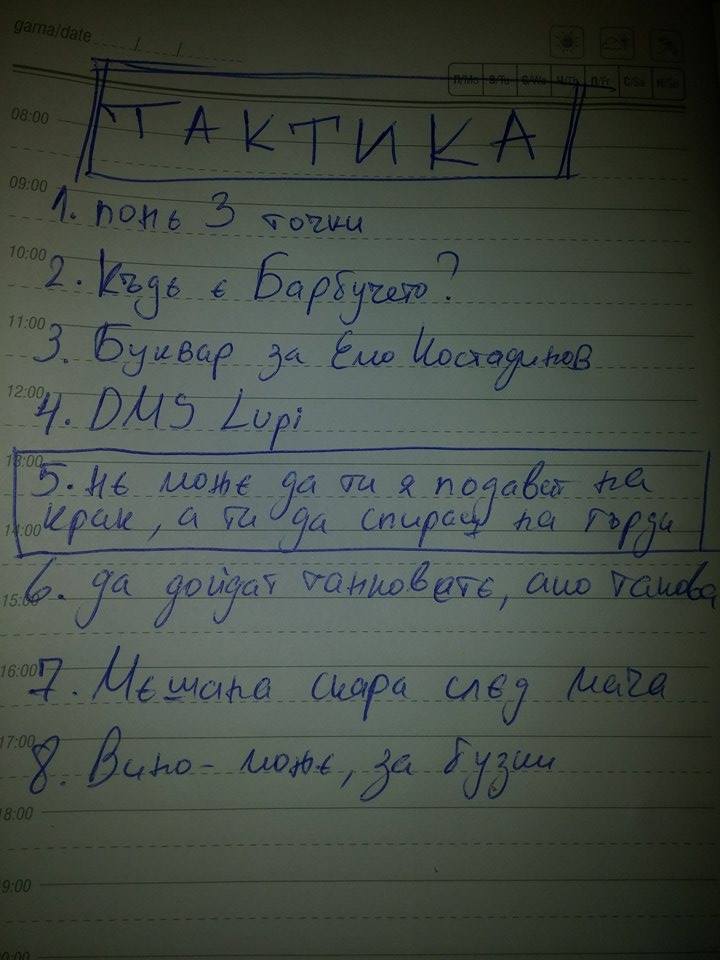 gama/date / /
П/Mo В/Tu С/We Ч/Th П/Fr С/Sa Н/Su
ТАКТИКА
08:00
09:00
1. понь 3 точки
10:00
2. Къдь е Барбучето?
11:00
3. Буквар за Емо Костадинов
12:00
4. DMS Lupi
13:00
5. не може да ти я подават на
14:00
крак, а ти да спираш на гърди
6. да дойдат танковете, ако такова
15:00
16:00
7. Мешана скара след мача
17:00
8. Вино - може, за бузки
18:00
19:00